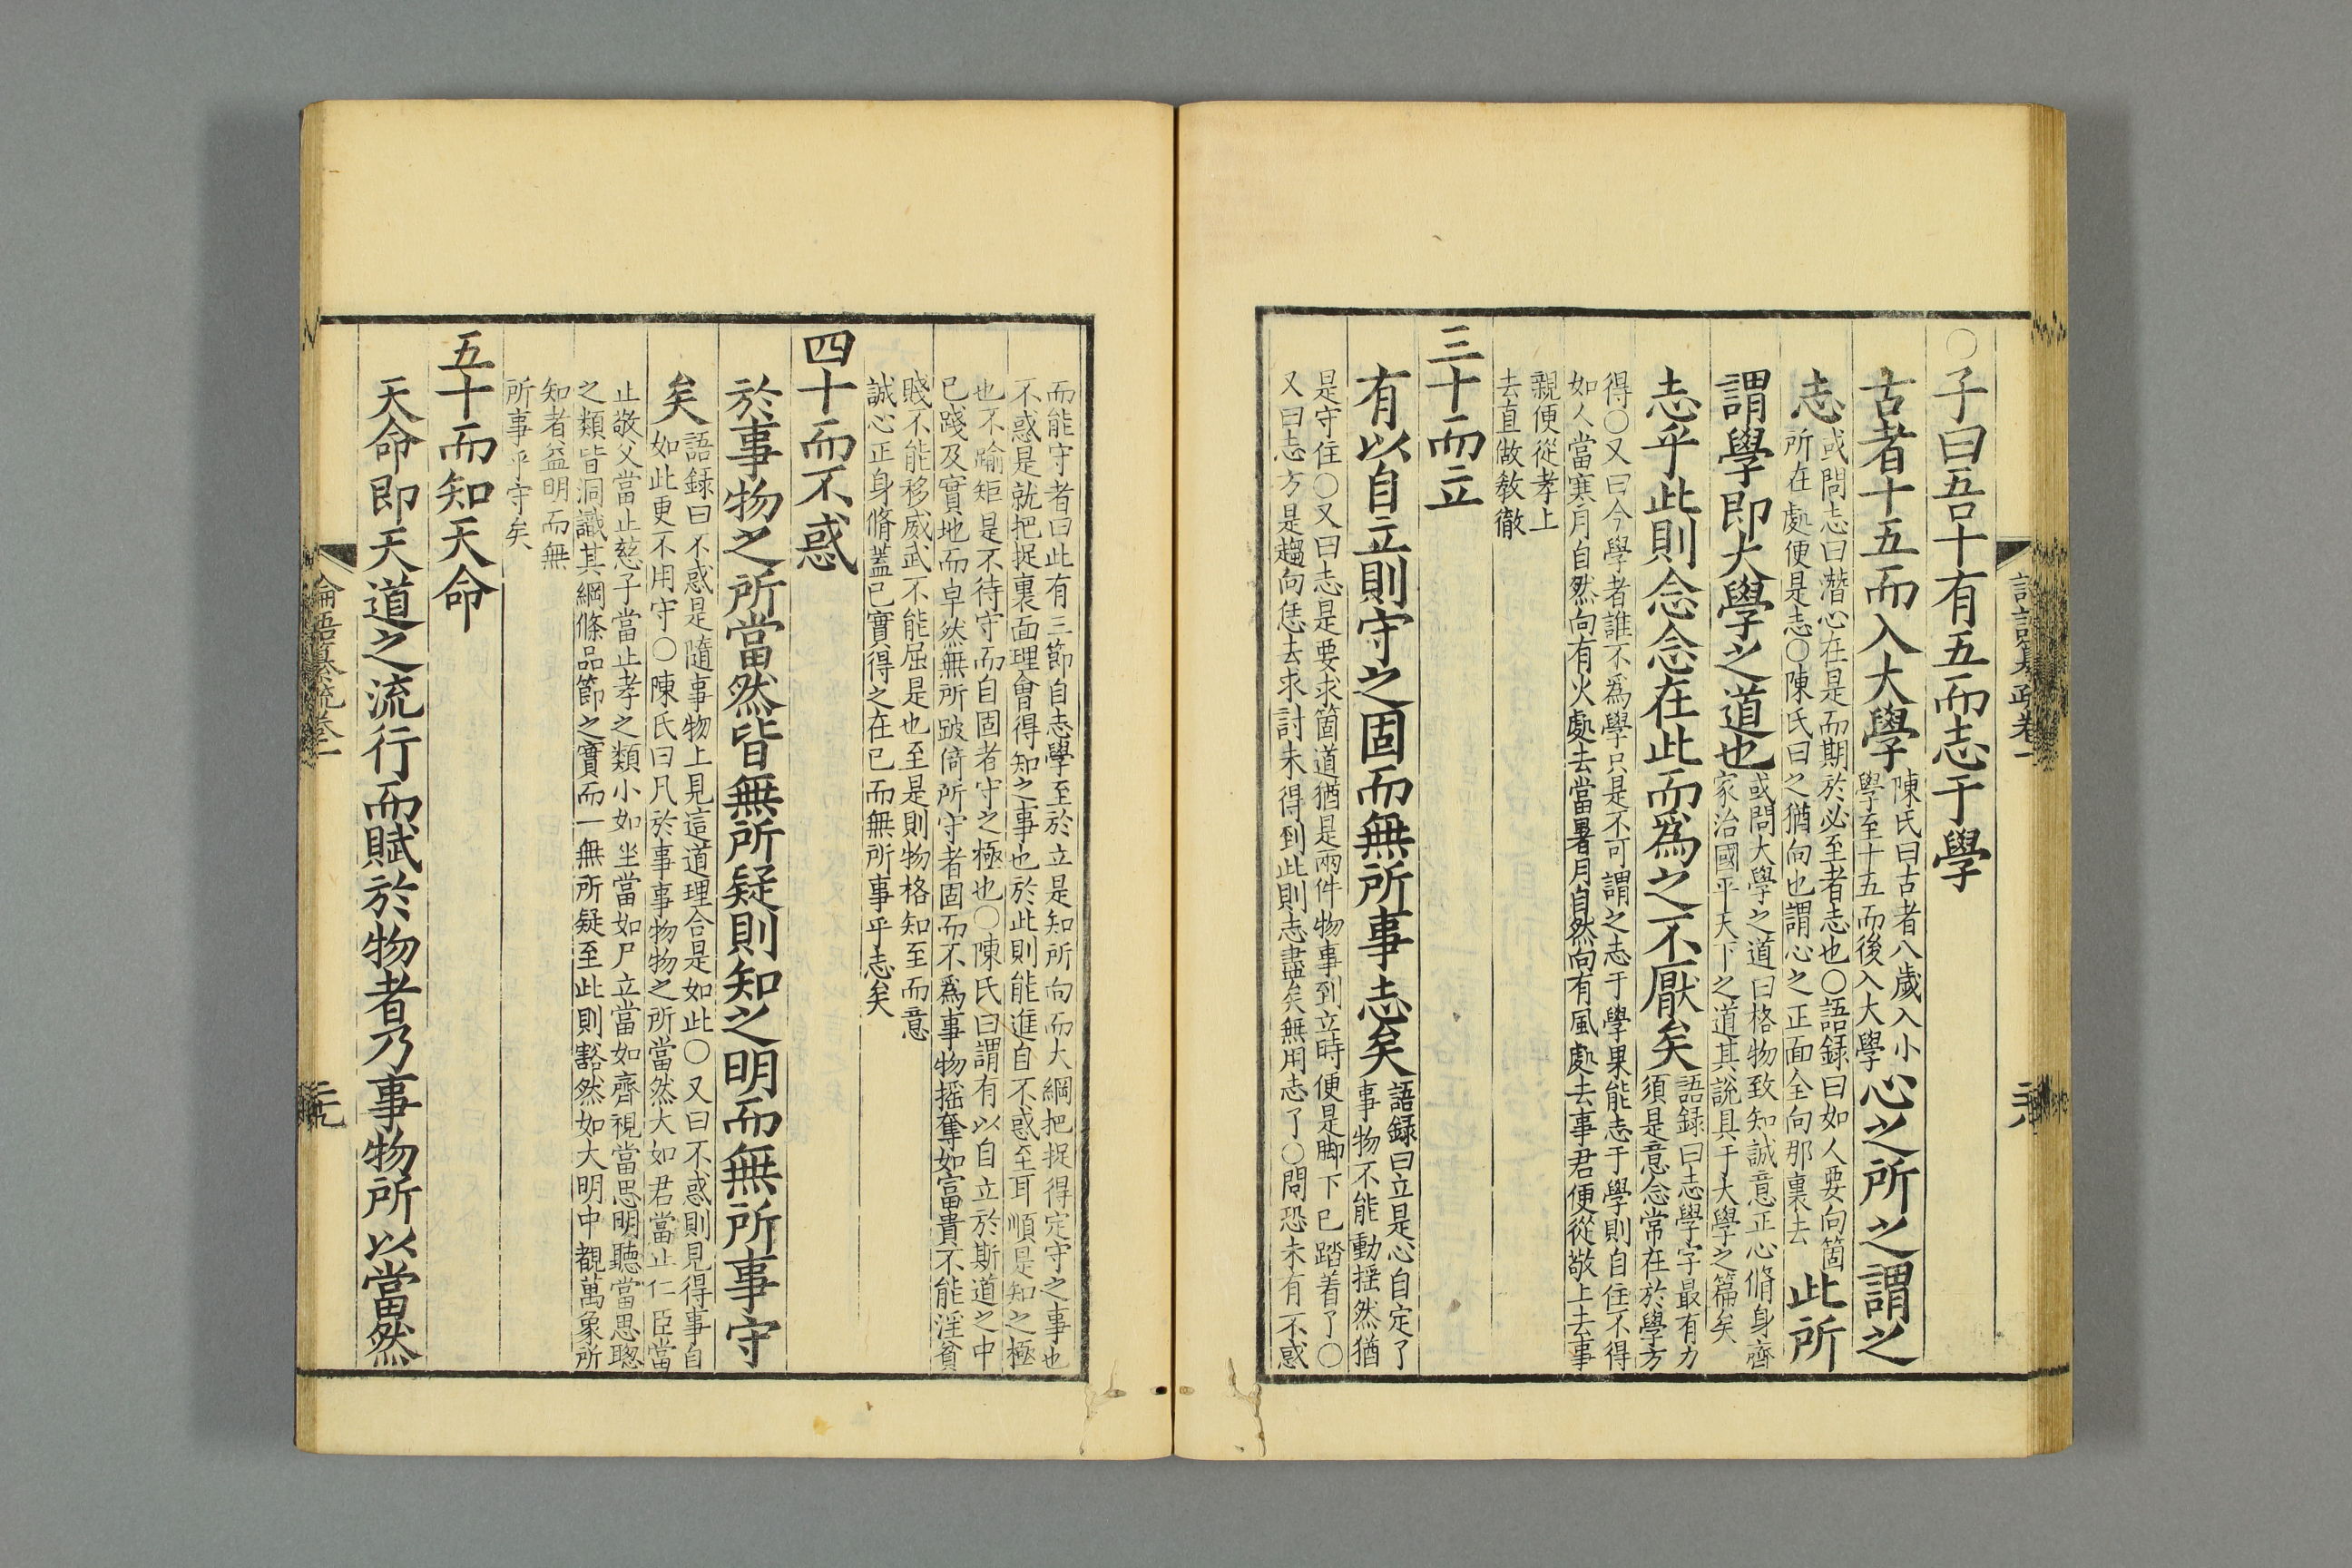 ○子曰吾十有五而志于學
古者十五而入大學
陳氏曰古者八歲入小
學至十五而後入大學
心之所之謂之
志
或問志曰潛心在是而期於必至者志也○語録曰如人要向箇
所在處便是志○陳氏曰之猶向也謂心之正面全向那裏去
此所
謂學即大學之道也
或問大學之道曰格物致知誠意正心脩身齊
家治國平天下之道其說具于大學之篇矣
志乎此則念念在此而爲之不厭矣
語録曰志學字最有力
須是意念常在於學方
得○又曰今學者誰不爲學只是不可謂之志于學果能志于學則自住不得
如人當寒月自然向有火處去當暑月自然向有風處去事君便從敬上去事
親便從孝上
去直做教徹
三十而立
有以自立則守之固而無所事志矣
語録曰立是心自定了
事物不能動揺然猶
是守住○又曰志是要求箇道猶是兩件物事到立時便是脚下已踏着了○
又曰志方是趨向恁去求討未得到此則志盡矣無用志了○問恐未有不惑
而能守者曰此有三節自志學至於立是知所向而大綱把捉得定守之事也
不惑是就把捉裏面理會得知之事也於此則能進自不惑至耳順是知之極
也不踰矩是不待守而自固者守之極也○陳氏曰謂有以自立於斯道之中
已踐及實地而卓然無所跛倚所守者固而不爲事物揺奪如富貴不能淫貧
賤不能移威武不能屈是也至是則物格知至而意
誠心正身脩蓋已實得之在已而無所事乎志矣
四十而不惑
於事物之所當然皆無所疑則知之明而無所事守
矣
語録曰不惑是隨事物上見這道理合是如此○又曰不惑則見得事自
如此更不用守○陳氏曰凡於事事物物之所當然大如君當止仁臣當
止敬父當止慈子當止孝之類小如坐當如尸立當如齊視當思明聽當思聦
之類皆洞識其綱條品節之實而一無所疑至此則豁然如大明中覩萬象所
知者益明而無
所事乎守矣
五十而知天命
天命即天道之流行而賦於物者乃事物所以當然
論語纂疏卷一
二十九